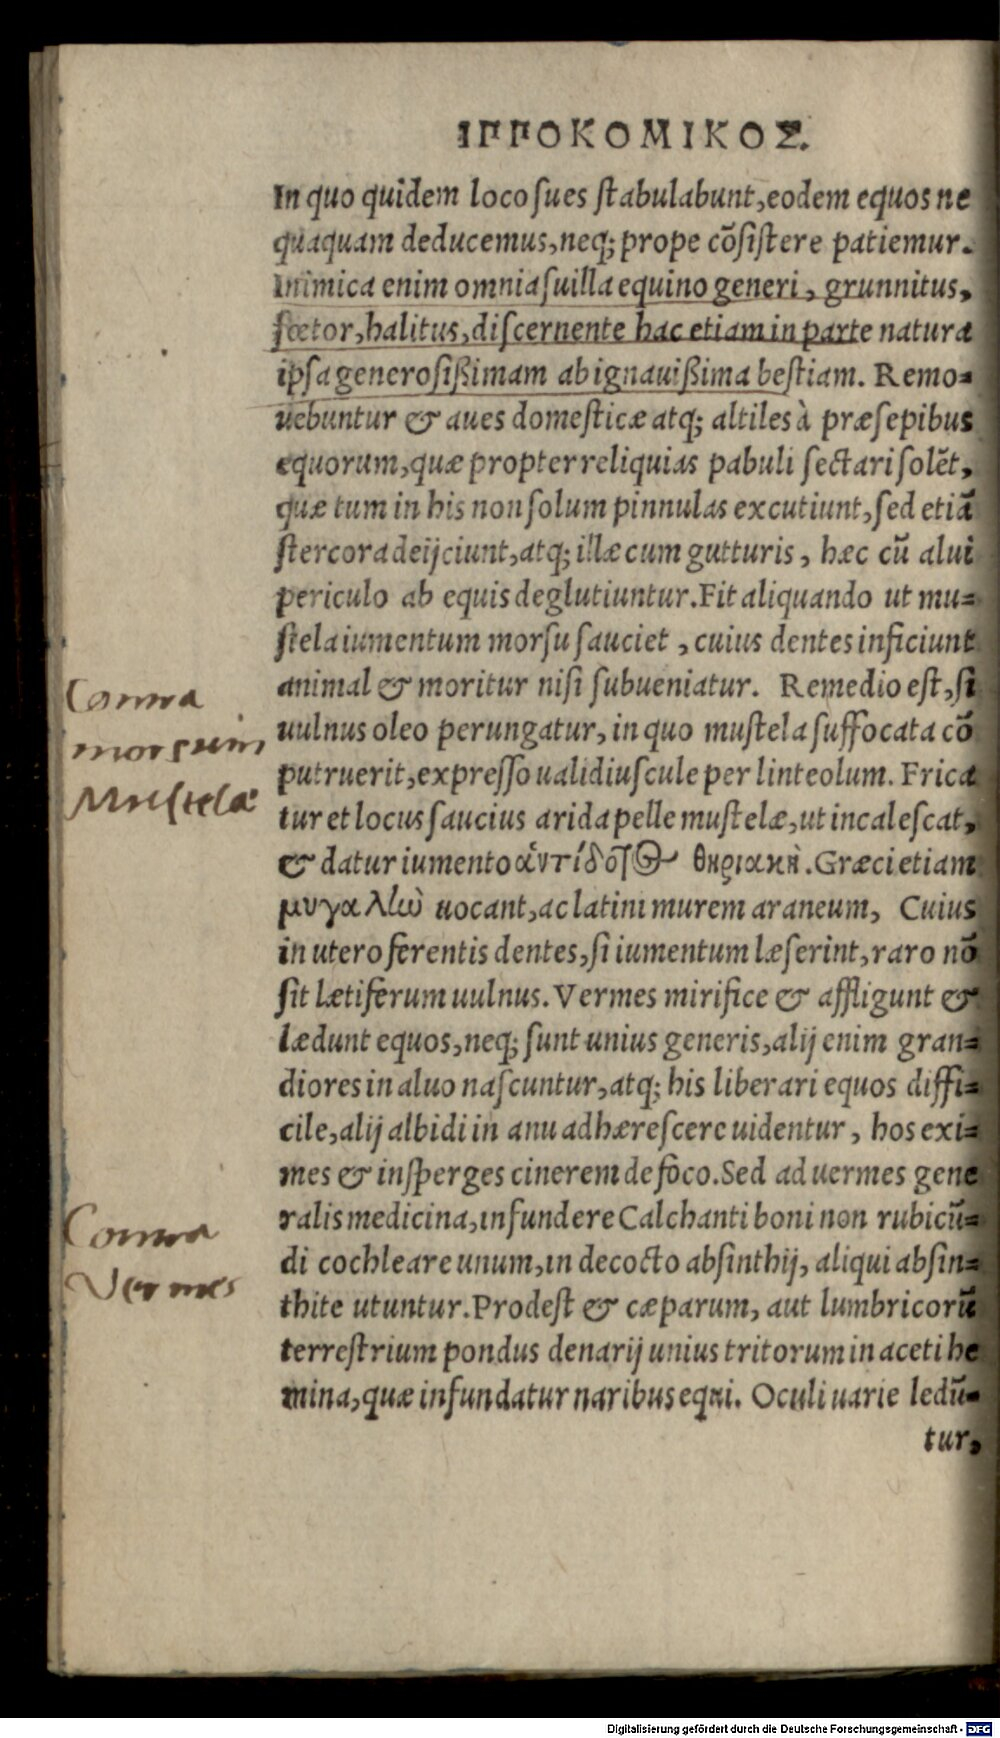 ΙΠΠΟΚΟΜΙΚΟΣ.
In quo quidem loco ſues ſtabulabunt, eodem equos ne
quaquam deducemus, neq; prope cõſiſtere patiemur.
Inimica enim omnia ſuilla equino generi, grunnitus,
fœtor, halitus, diſcernente hac etiam in parte natura
ipſa generoſißimam ab ignauißima beſtiam. Remo=
uebuntur & aues domeſticæ atq; altiles à præſepibus
equorum, quæ propter reliquias pabuli ſectari ſolẽt,
quæ tum in his non ſolum pinnulas excutiunt, ſed etiã
ſtercora deijciunt, atq; illæ cum gutturis, hæc cũ alui
periculo ab equis deglutiuntur. Fit aliquando ut mu=
ſtela iumentum morſu ſauciet, cuius dentes inficiunt
animal & moritur niſi ſubueniatur. Remedio eſt, ſi
uulnus oleo perungatur, in quo muſtela ſuffocata cõ
putruerit, expreſſo ualidiuſcule per linteolum. Frica
tur et locus ſaucius arida pelle muſtelæ, ut incaleſcat,
& datur iumento ἀντίδοτος θηριακὴ. Græci etiam
μυγαλὼ uocant, ac latini murem araneum, Cuius
in utero ferentis dentes, ſi iumentum læſerint, raro nõ
ſit lætiferum uulnus. Vermes mirifice & affligunt &
lædunt equos, neq; ſunt unius generis, alij enim gran=
diores in aluo naſcuntur, atq; his liberari equos diffi=
cile, alij albidi in anu adhæreſcere uidentur, hos exi=
mes & inſperges cinerem de foco. Sed ad uermes gene
ralis medicina, infundere Calchanti boni non rubicũ=
di cochleare unum, in decocto abſinthij, aliqui abſin=
thite utuntur. Prodeſt & cæparum, aut lumbricorũ
terreſtrium pondus denarij unius tritorum in aceti he
mina, quæ infundatur naribus equi. Oculi uarie ledũ=
tur,
Contra
morsum
Mustelæ
Contra
Vermes
Digitalisierung gefördert durch die Deutsche Forschungsgemeinschaft - DFG